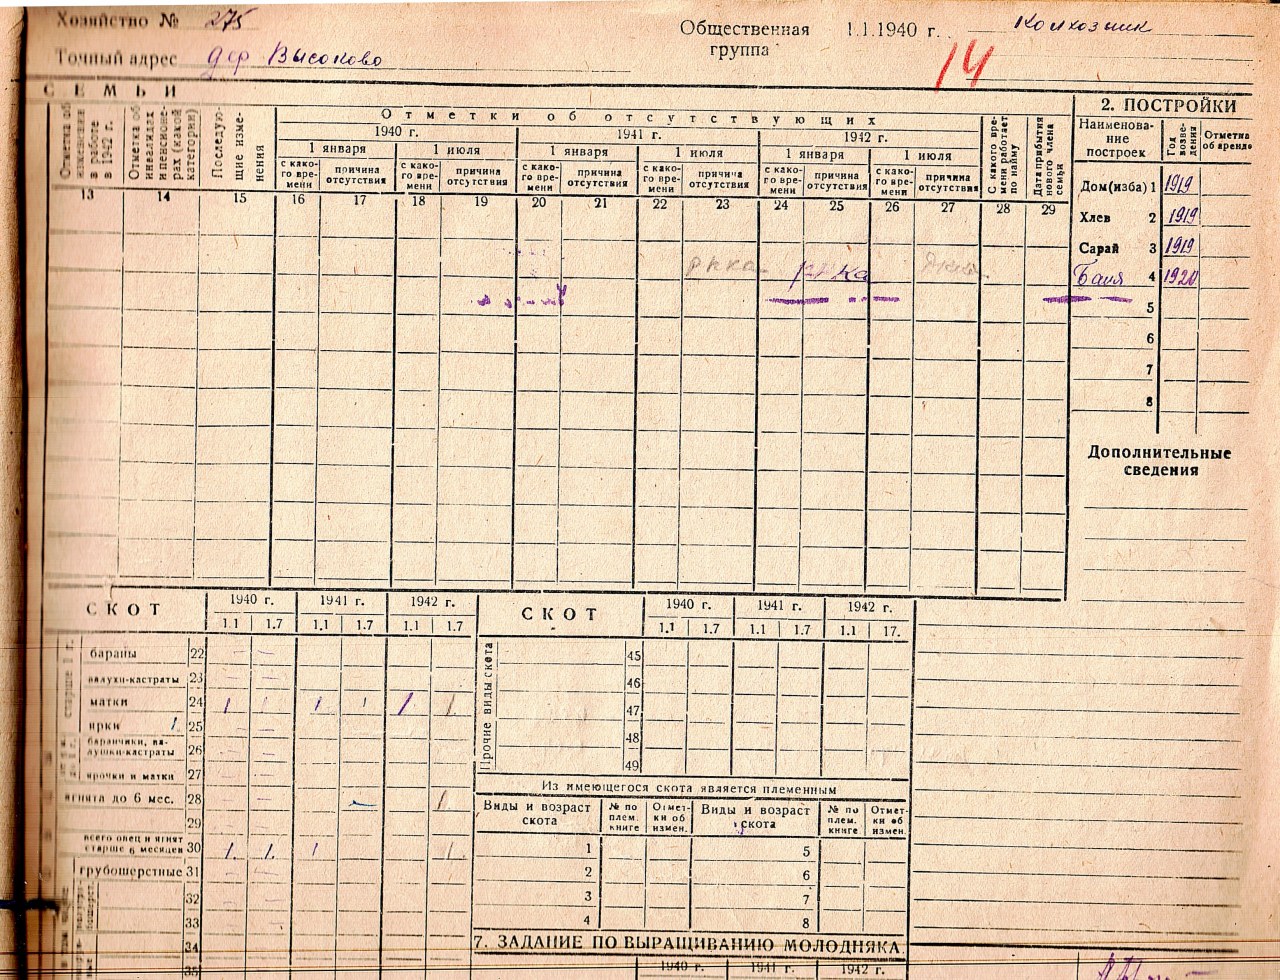 Хозяйство № 275
Общественная группа 1.1.1940 г. Колхозник
Точный адрес дер Высоково
14
СЕМЬИ
Отметка об
в работе в 1942 г.
Отметка об инвалидах и пенсионерах (какой категории)
Последующие изменения
Отметки об отсутствующих
1940 г. 1941 г. 1942 г.
1 января 1 июля 1 января 1 июля 1 января 1 июля
с какого времени причина отсутствия с какого времени причина отсутствия с какого времени причина отсутствия с какого времени причина отсутствия с какого времени причина отсутствия с какого времени причина отсутствия
С какого времени работает по найму
Дата прибытия нового члена семьи
13 14 15 16 17 18 19 20 21 22 23 24 25 26 27 28 29
РККА РККА
2. ПОСТРОЙКИ
Наименование построек Год возведения Отметка об аренде
Дом(изба) 1 1919
Хлев 2 1919
Сарай 3 1919
Баня 4 1920
5
6
7
8
Дополнительные сведения
СКОТ 1940 г. 1941 г. 1942 г.
1.1 1.7 1.1 1.7 1.1 1.7
старше 1 г.
бараны 22
валухи-кастраты 23
матки 24 1 1 1 1 1 1
ярки 1 25
баранчики, валушки-кастраты 26
ярочки и матки 27
ягнята до 6 мес. 28 1
29
всего овец и ягнят старше 6 месяцев 30 1 1 1 1
грубошерстные 31
32
33
34
35
СКОТ 1940 г. 1941 г. 1942 г.
1.1 1.7 1.1 1.7 1.1 17.
Прочие виды скота
45
46
47
48
49
Из имеющегося скота является племенным
Виды и возраст скота № по плем. книге Отметки об измен. Виды и возраст скота № по плем. книге Отметки об измен.
1 5
2 6
3 7
4 8
7. ЗАДАНИЕ ПО ВЫРАЩИВАНИЮ МОЛОДНЯКА
1940 г. 1941 г. 1942 г.